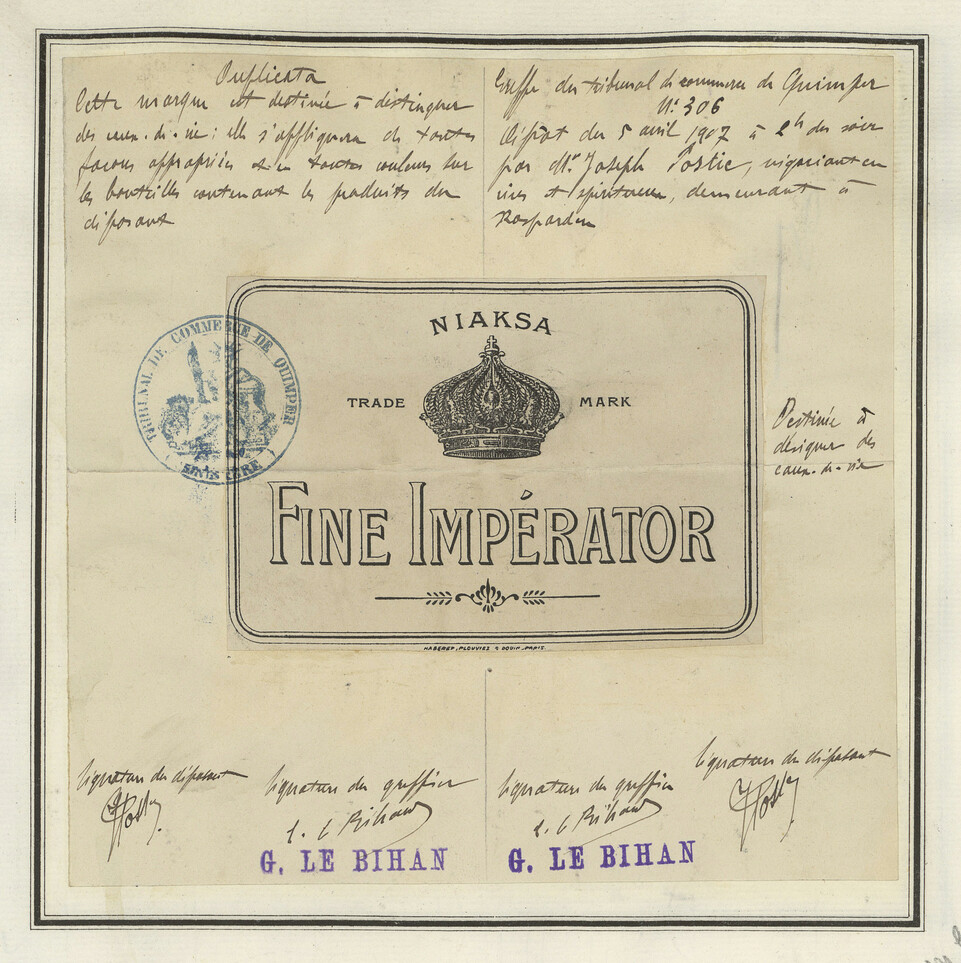 Duplicata
Cette marque est destinée à distinguer
des eaux-de-vie; elle s'appliquera de toutes
façons appropriées et en toutes couleurs sur
les bouteilles contenant les produits du
déposant
Greffe du tribunal de commerce de Quimper
N° 306
Dépôt du 5 avril 1907 à 2h du soir
par Mr Joseph Postic, négociant en
vins et spiritueux, demeurant à
Rosporden
NIAKSA
TRADE MARK
FINE IMPÉRATOR
HABERER, PLOUVIEZ & DOUIN _ PARIS.
TRIBUNAL DE COMMERCE DE QUIMPER
FINISTERE
Destinée à
désigner des
eaux-de-vie
Signature du déposant
JPostic
Signature du greffier
G. Le Bihan
G. LE BIHAN
Signature du greffier
G. Le Bihan
G. LE BIHAN
Signature du déposant
JPostic